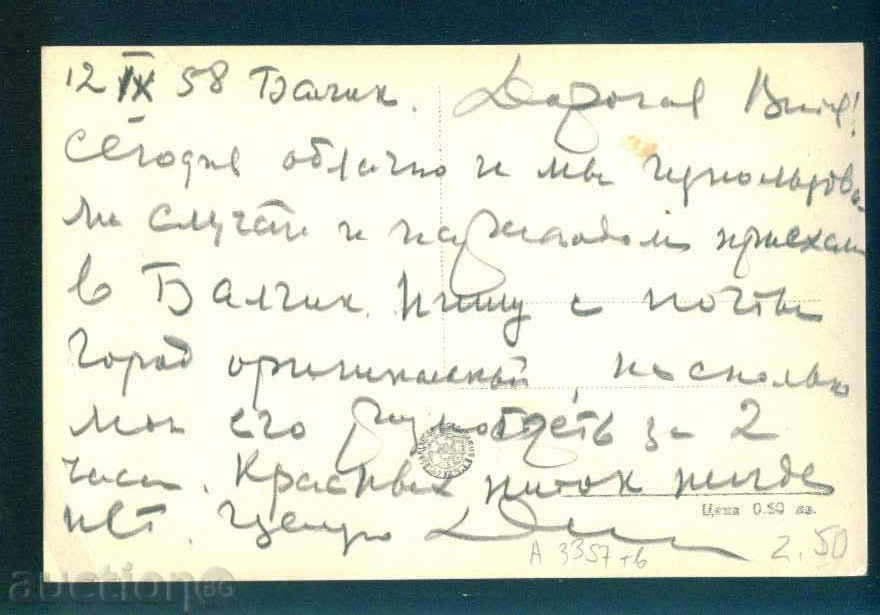 12 IX 58 Балчик. Дорогая Витя!
Сегодня облачно и мы использова-
ли случай и пароходом приехали
в Балчик. Пишу с почты
Город оригинальный, насколько
мы его успеть за 2
часа. Красивых ниток нигде
нет. Целую
Цена 0.50 лв.
А 3357+в 2.50
auction BG